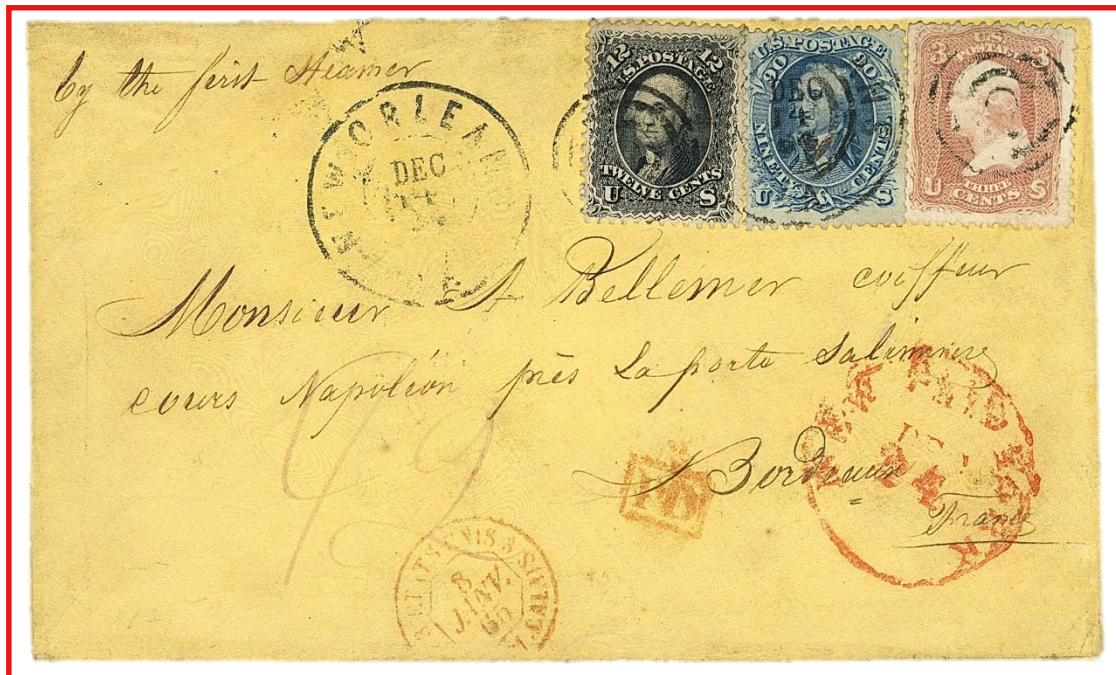 by the first Steamer
NEW ORLEANS
DEC
12 12
U.S. POSTAGE
TWELVE CENTS
U S
U.S. POSTAGE
90 90
DEC
NINETY CENTS
U S
U.S.
3 3
THREE
CENTS
U S
Monsieur A Bellemer coiffeur
cours Napoléon près La porte Salinière
Bordeaux
France
PAID
24
PD
ETATS UNIS
8
JANV.
65
CALAIS